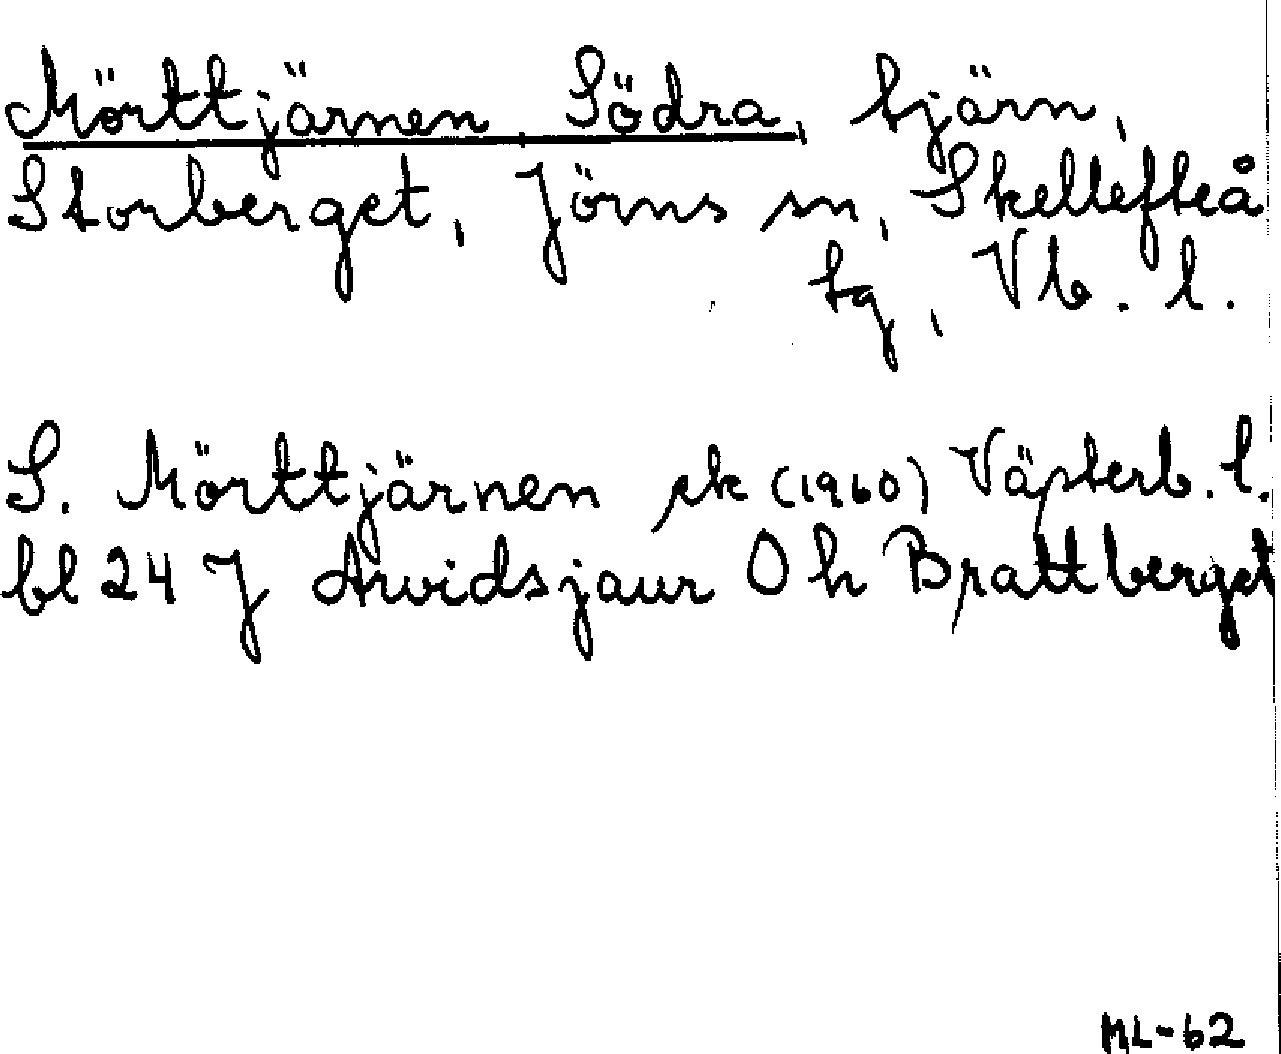 Mörttjärnen Södra, tjärn,
Storberget, Jörns sn, Skellefteå
tg, Vb. l.
S. Mörttjärnen ek (1960) Västerb. l.
bl 24 J Arvidsjaur 0 h Brattberget
ML-62